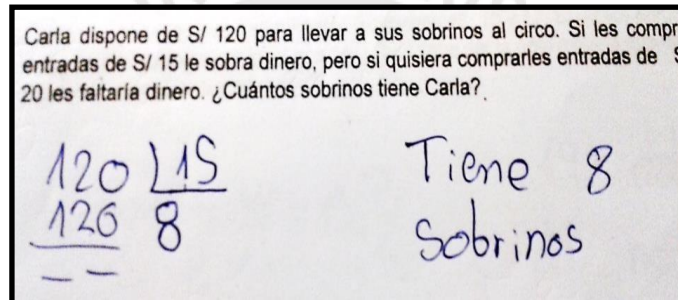 Carla dispone de S/ 120 para llevar a sus sobrinos al circo. Si les compr
entradas de S/ 15 le sobra dinero, pero si quisiera comprarles entradas de S
20 les faltaría dinero. ¿Cuántos sobrinos tiene Carla?
120 15
120 8
— —
Tiene 8
Sobrinos